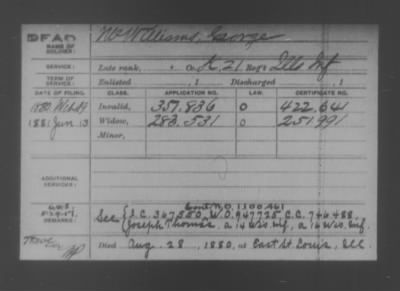 DEAD
McWilliams, George
NAME OF
SOLDIER:
SERVICE:
Late rank, , Co. K, 21 Reg't Ills Inf
TERM OF
SERVICE:
Enlisted , 1 Discharged , 1
DATE OF FILING. CLASS. APPLICATION NO. LAW. CERTIFICATE NO.
1880 Invalid, 357.836 O 422.641
1881 Jan 13 Widow, 283.531 O 251991
Minor,
ADDITIONAL
SERVICES:
REMARKS:
Cont. W.O. 1100.461
See { S.C. 367.550, W.O. 947725, C.C. 746488.
Joseph Thomas, a 14 Wis. Inf, a 16 Wis. Inf.
Died Aug. 28, 1880, at East St Louis, Ill.